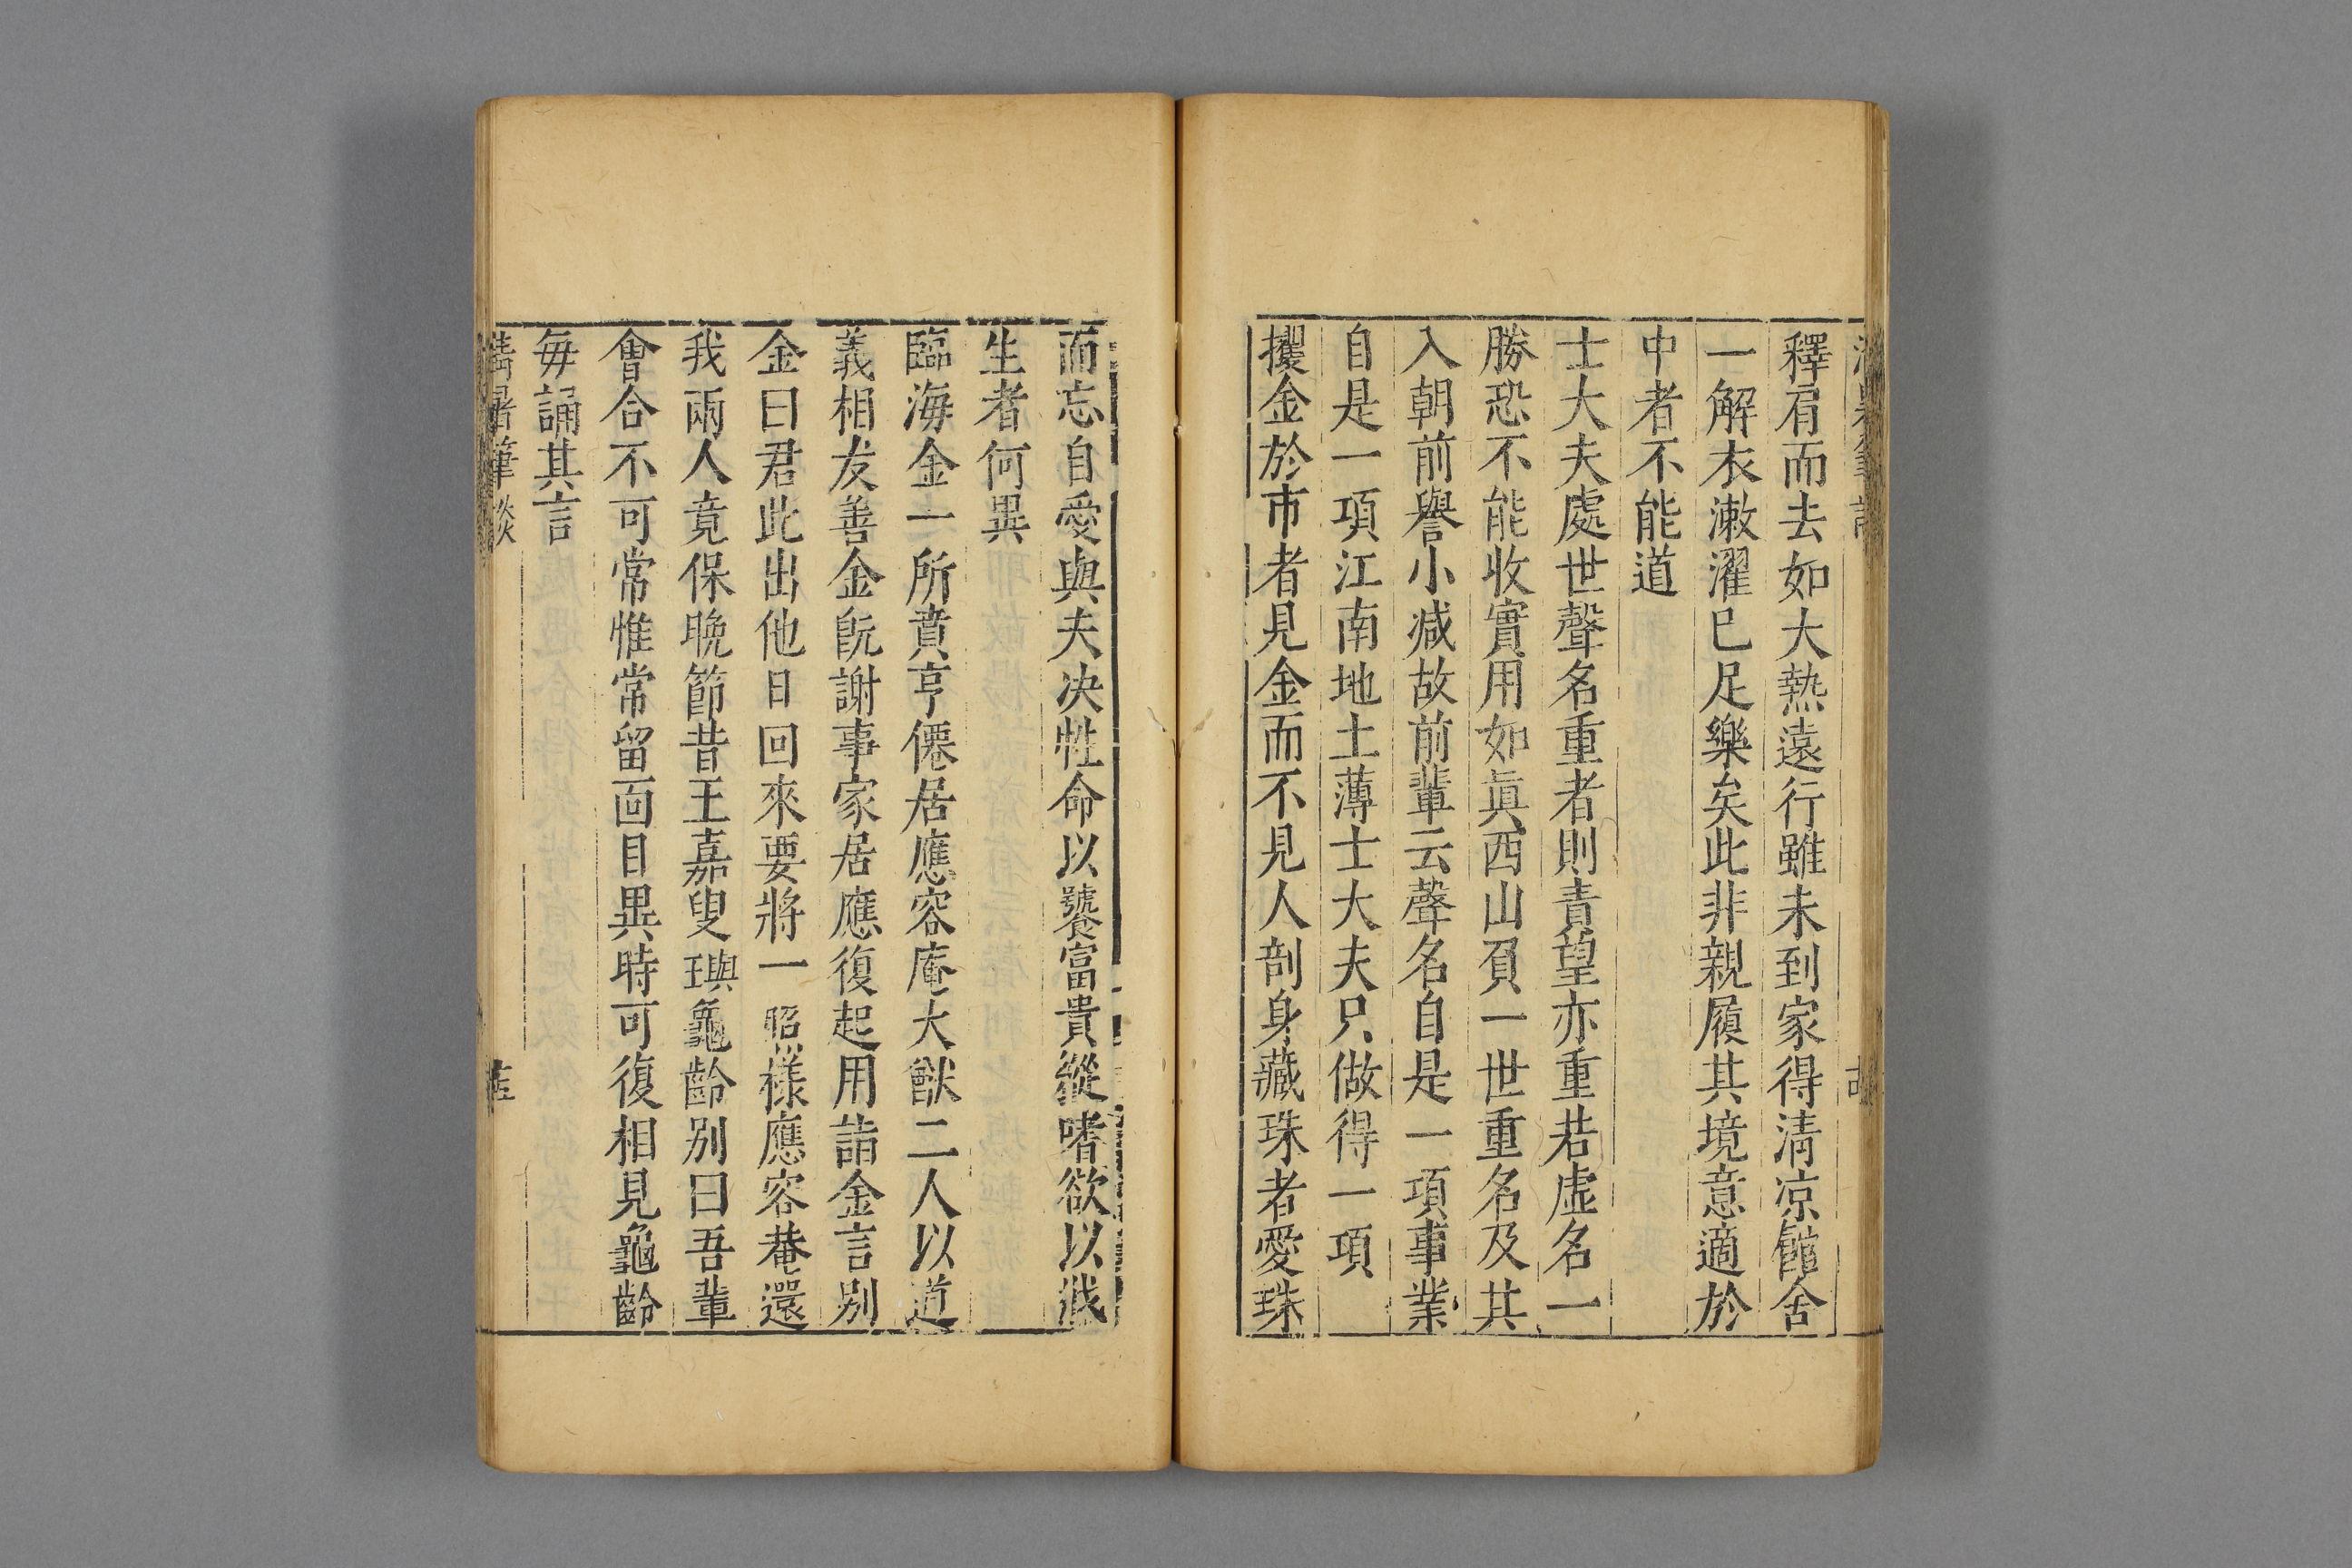 釋肩而去如大熱遠行雖未到家得清凉館舍
一解衣漱濯已足樂矣此非親履其境意適於
中者不能道
士大夫處世聲名重者則責望亦重若虛名一
勝恐不能收實用如眞西山負一世重名及其
入朝前譽小减故前輩云聲名自是一項事業
自是一項江南地土薄士大夫只做得一項
攫金於市者見金而不見人剖身藏珠者愛珠
而忘自愛與夫决性命以饕富貴縱嗜欲以戕
生者何異
臨海金一所賁亨僊居應容庵大猷二人以道
義相友善金旣謝事家居應復起用詣金言别
金曰君此出他日回來要將一照樣應容菴還
我兩人竟保晚節昔王嘉叟與龜齡别曰吾輩
會合不可常惟常留面目異時可復相見龜齡
每誦其言
清暑筆談